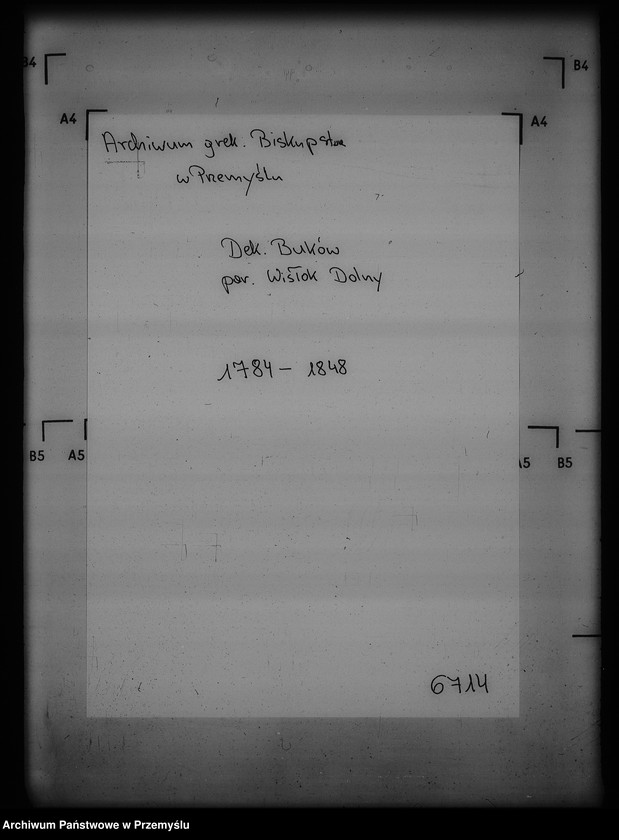 B4
B4
A4
A4
Archiwum grek. Biskupstwa
w Przemyślu
Dek. Buków
par. Wisłok Dolny
1784 - 1848
B5
A5
A5
B5
6714
Archiwum Państwowe w Przemyślu